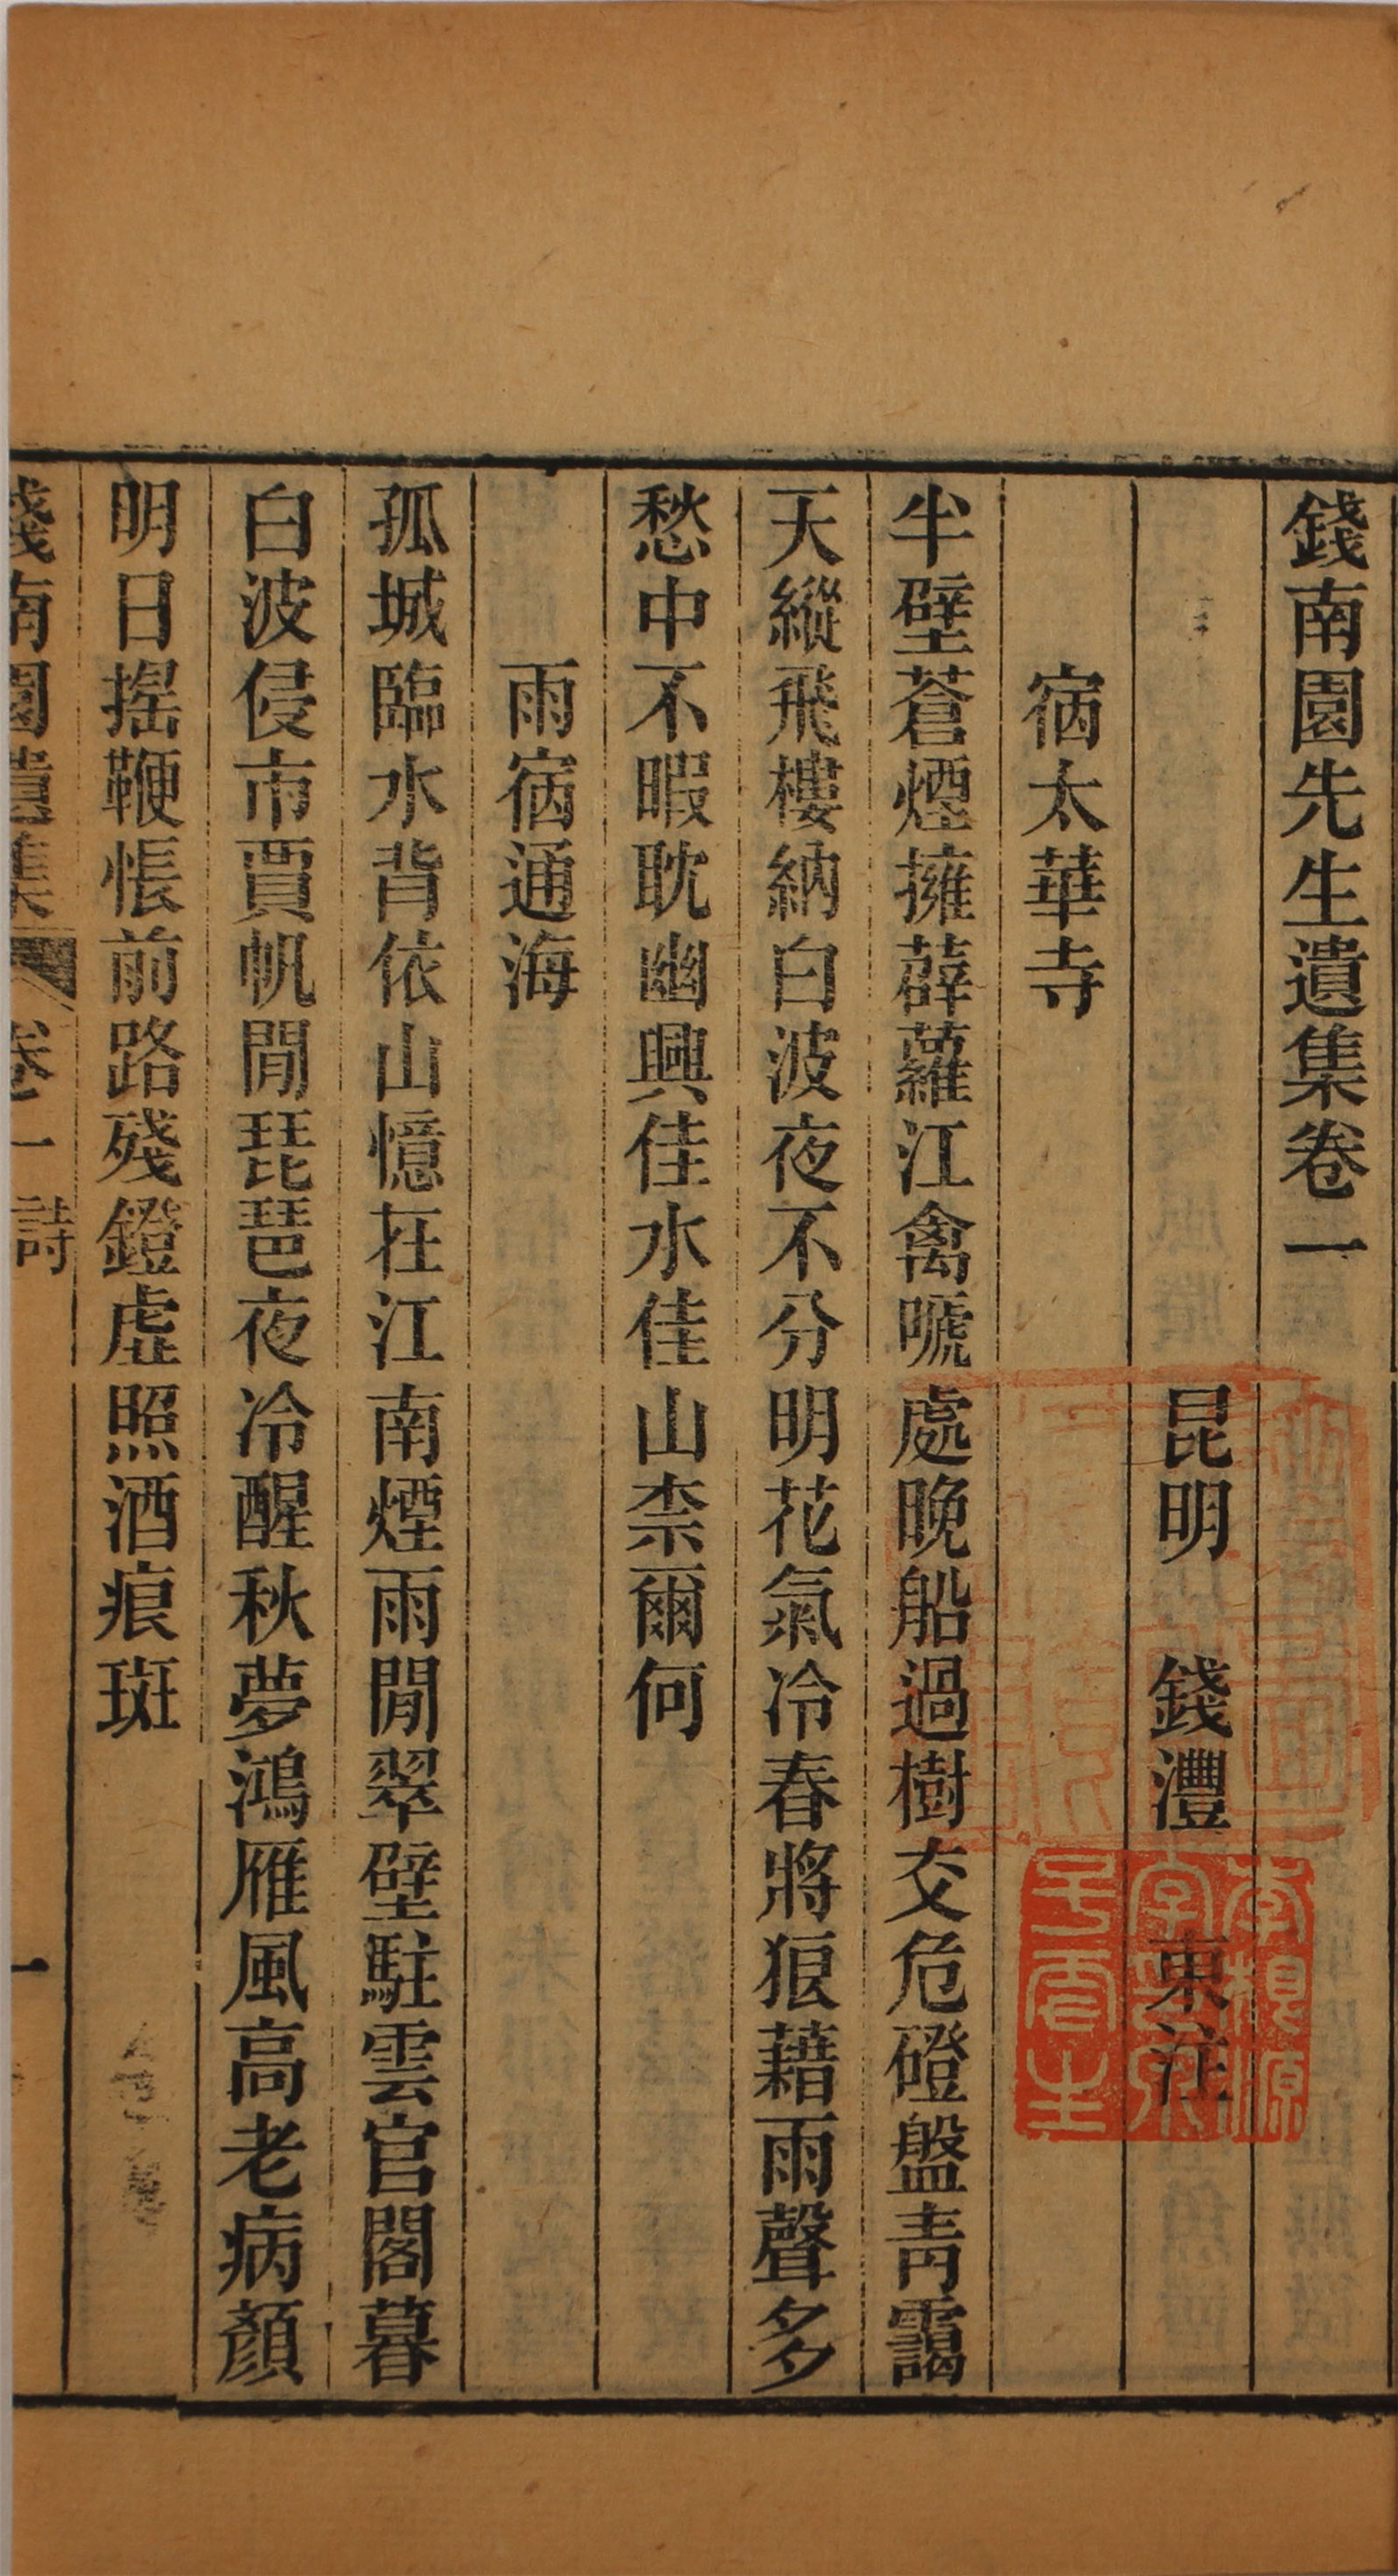 錢南園先生遺集卷一
昆明 錢灃 東注
宿太華寺
半壁蒼煙擁薜蘿江禽嗁處晚船過樹交危磴盤靑靄
天縱飛樓納白波夜不分明花氣冷春將狼藉雨聲多
愁中不暇耽幽興佳水佳山柰爾何
雨宿通海
孤城臨水背依山憶在江南煙雨閒翠壁駐雲官閣暮
白波侵市賈帆閒琵琶夜冷醒秋夢鴻雁風高老病顏
明日搖鞭悵前路殘鐙虛照酒痕斑
錢南園遺集 卷一 詩 一
李根源字印泉号雪生